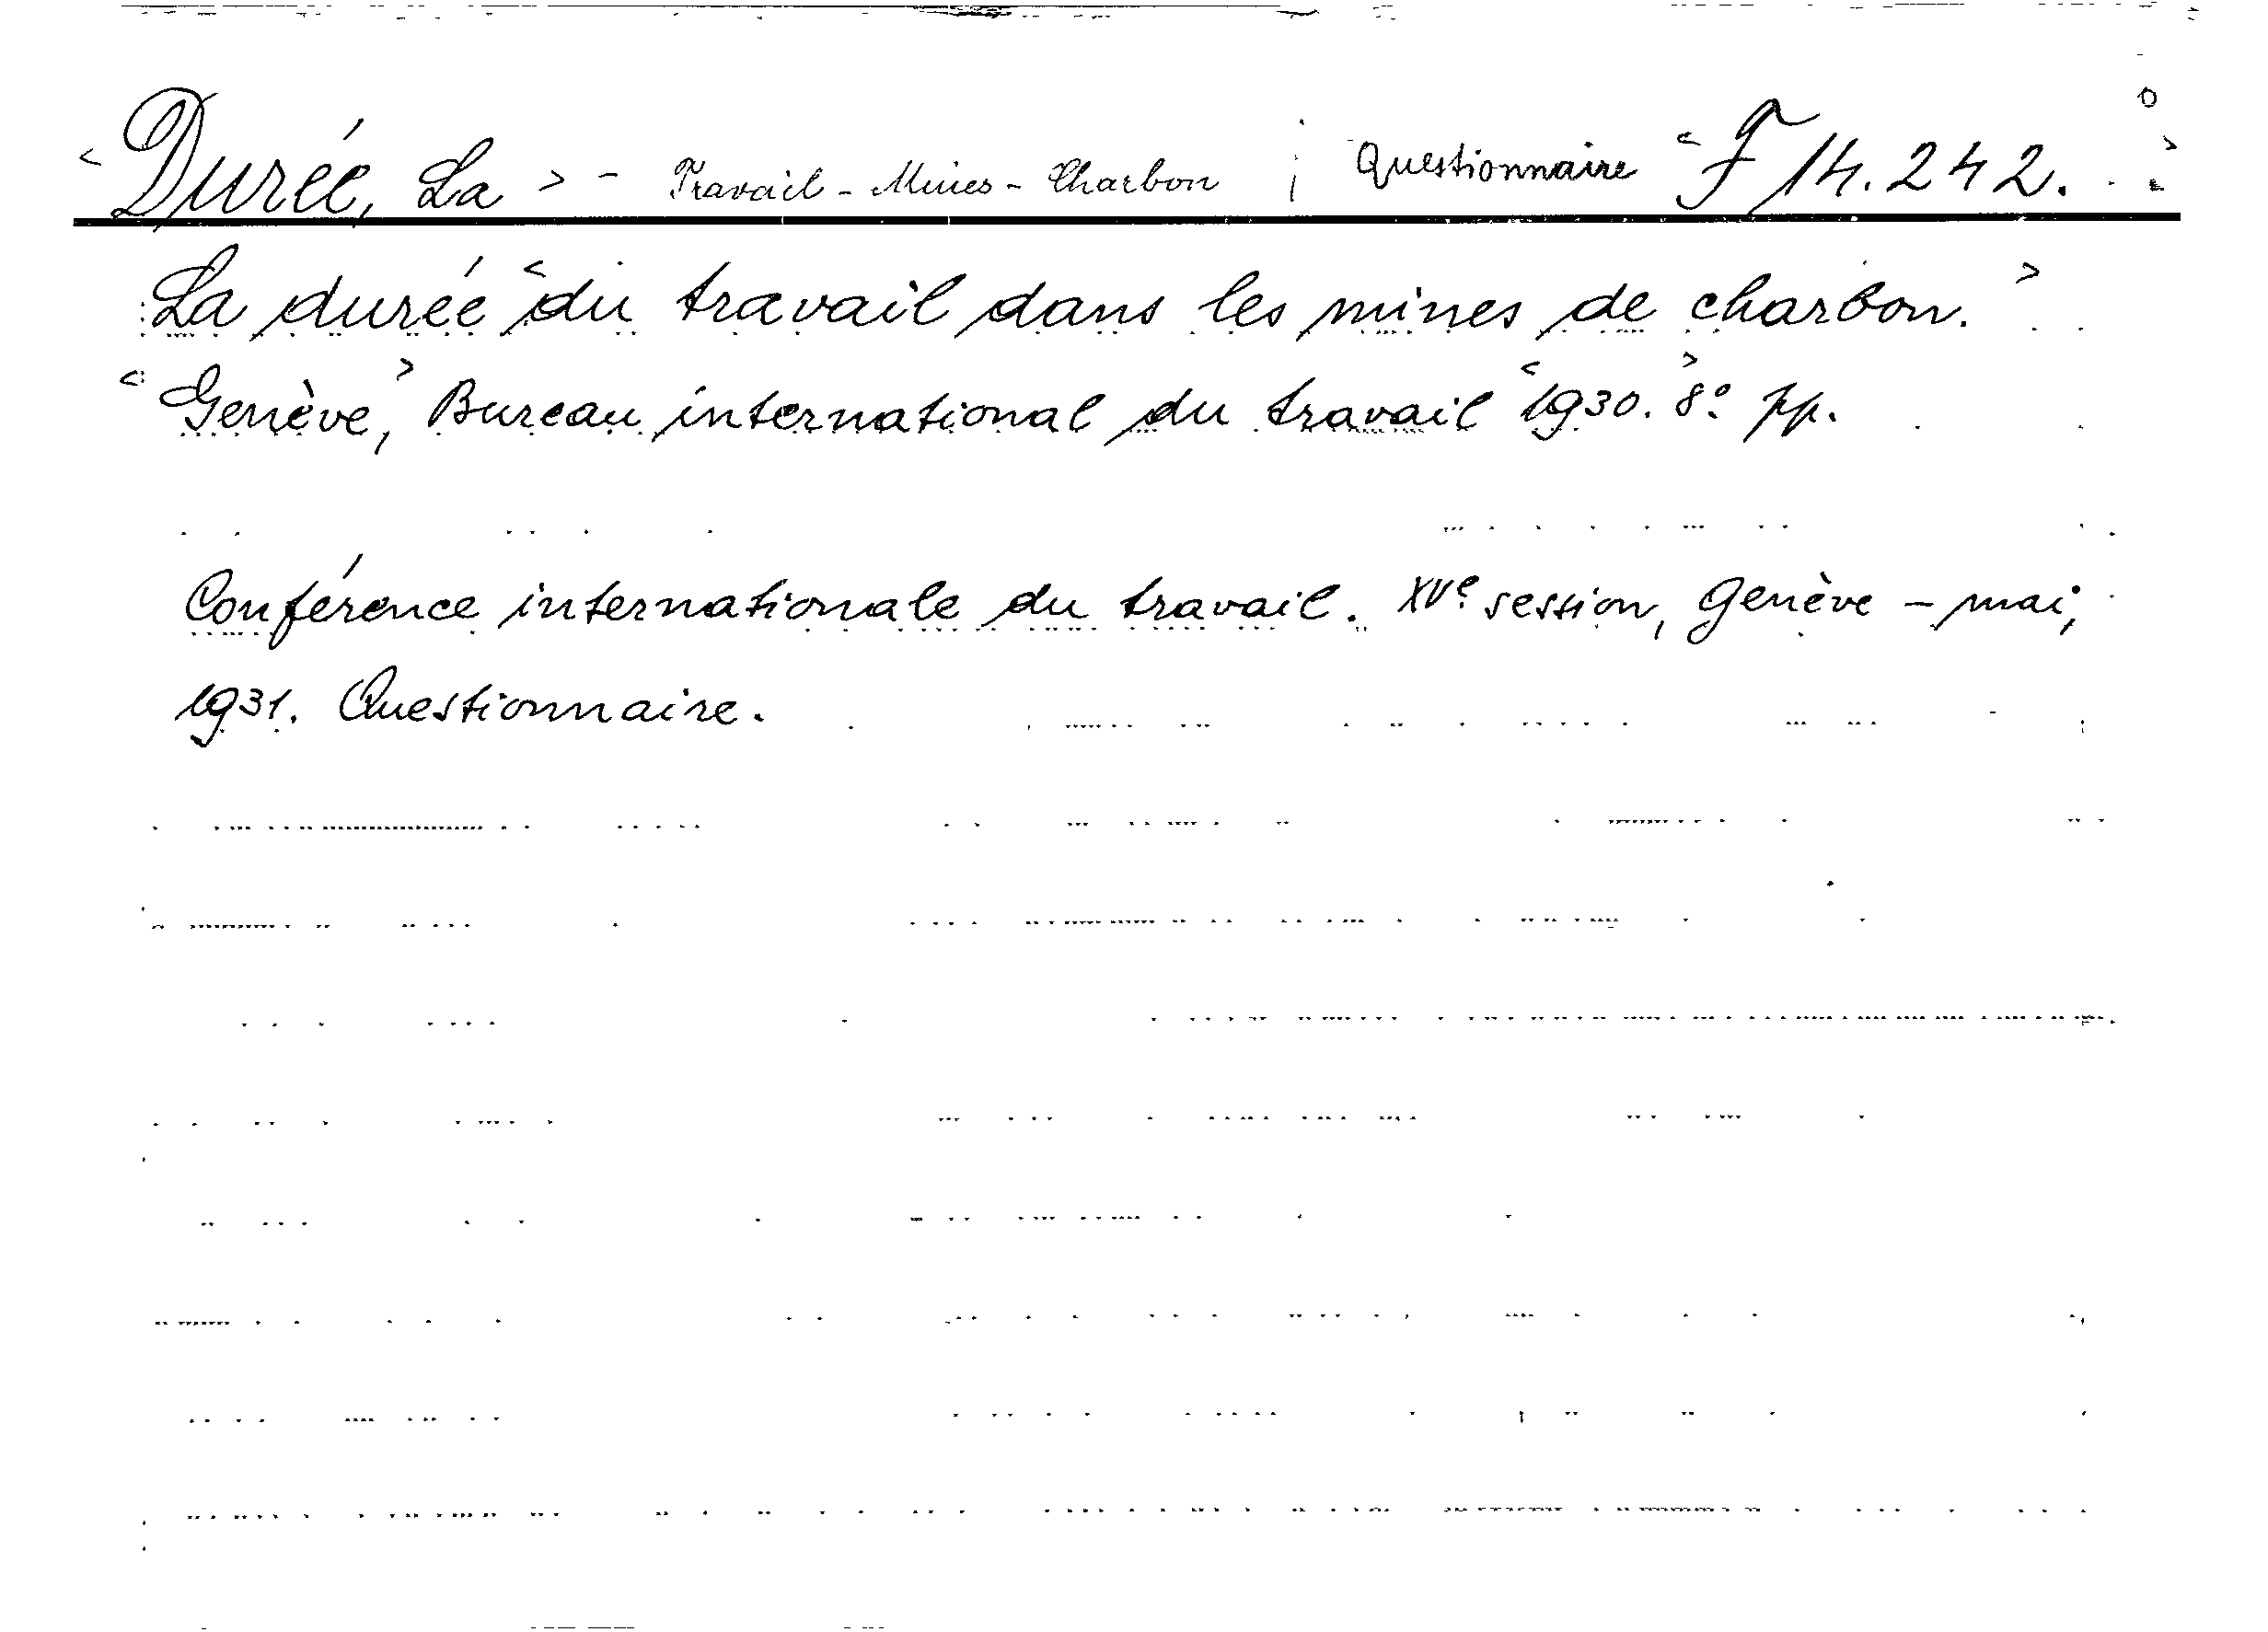 <Durée, La> - Travail - Mines - Charbon ; Questionnaire <F 14.242.>
La durée <du travail dans les mines de charbon.>
<Genève,> Bureau international du travail <1930.> 8° pp.
Conférence internationale du travail. XVe session, Genève - mai,
1931. Questionnaire.